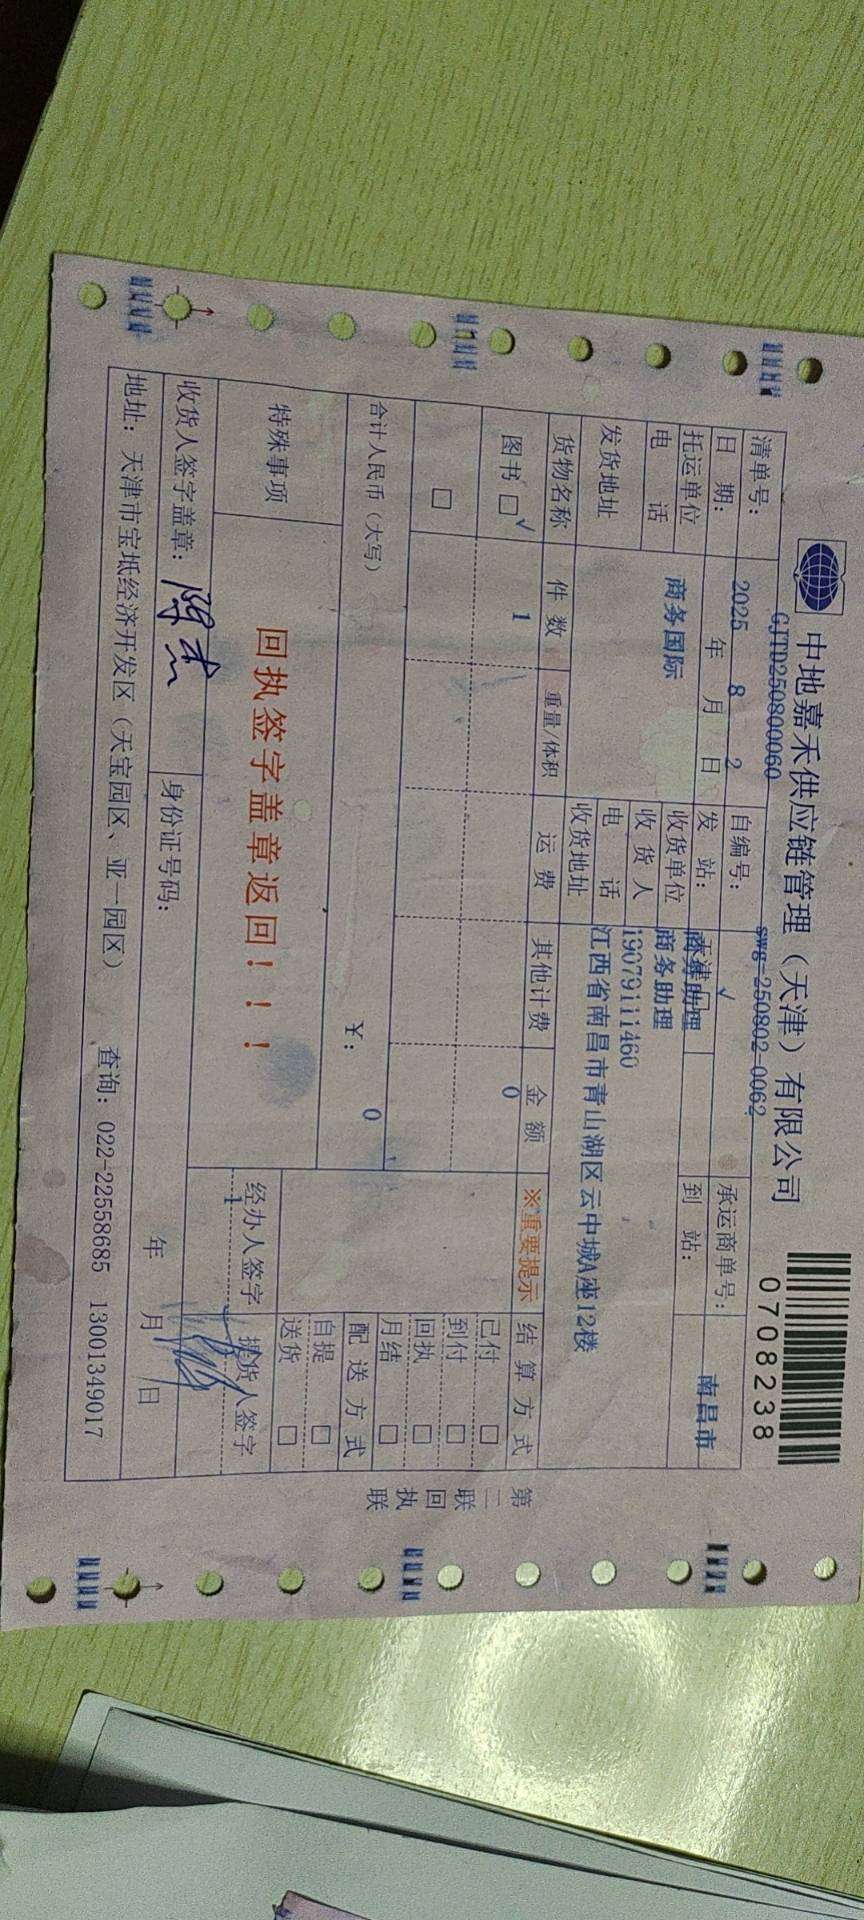 中地嘉禾供应链管理（天津）有限公司
0708238
清单号： GJTD250800060 自编号： swg-250802-0062 承运商单号：
日 期： 2025 年 8 月 2 日 发 站： 天津 √ 到 站： 南昌市
托运单位 商务国际 收货单位 商务助理
收 货 人 商务助理
电 话 电 话 19079111460
发货地址 收货地址 江西省南昌市青山湖区云中城A座12楼
货物名称 件 数 重量/体积 运 费 其他计费 金 额 ※重要提示 结 算 方 式
图书 □ √ 1 0 已付 □
到付 □
□ 回执 □
月结 □
合计人民币（大写） ￥： 0 配 送 方 式
自提 □
送货 □
特殊事项 回执签字盖章返回！！！ 经办人签字 提货人签字
1
收货人签字盖章： 身份证号码： 年 月 日
地址：天津市宝坻经济开发区（天宝园区、亚一园区） 查询：022-22558685 13001349017
第二联 回执联